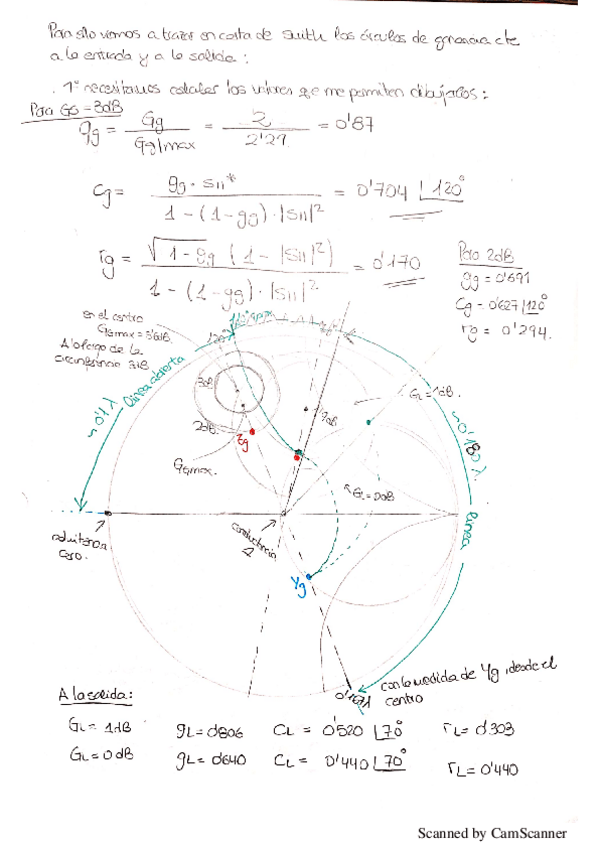 Para ello vamos a trazar en carta de Smith los círculos de ganancia cte
a la entrada y a la salida:
1º necesitamos calcular los valores que me permiten dibujarlos:
Para GS = 3dB
gg = Gg / Gg|max = 2 / 2'29 = 0'87
Cg = gg · S11* / 1 - (1-gg) · |S11|² = 0'704 |120°
rg = √1-gg (1 - |S11|²) / 1 - (1-gg) · |S11|² = 0'170
Para 2dB
gg = 0'691
Cg = 0'627 |120°
rg = 0'294.
en el centro
GGmax = 3'6dB
A lo largo de la
circunferencia 3dB
120°
~ 0'1 λ
línea abierta
3dB
2dB
Zg
GGmax.
GL = 1dB.
~ 0'180 λ
línea
GL = 0dB
admitancia
cero.
conductancia
1
Yg
con la medida de Yg, desde el
centro
A la salida:
GL = 1dB gL = 0'806 CL = 0'520 |70° rL = 0'303
GL = 0dB gL = 0'640 CL = 0'440 |70° rL = 0'440
Scanned by CamScanner